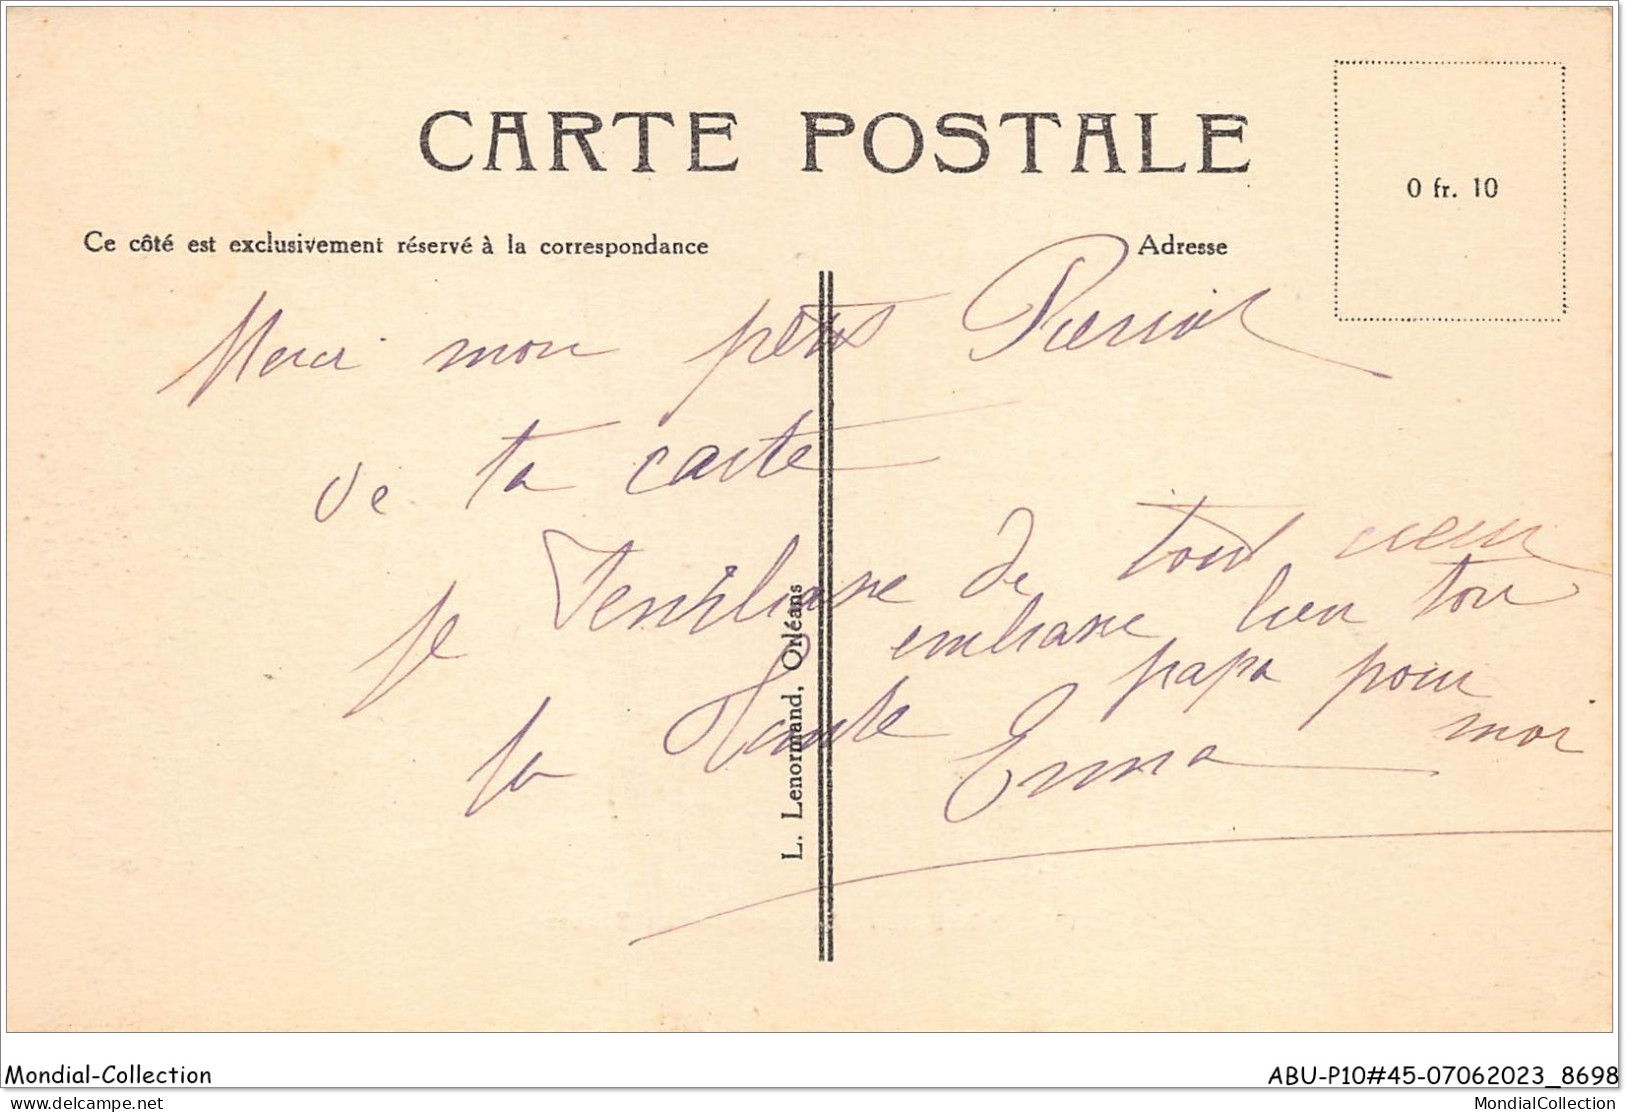 CARTE POSTALE
0 fr. 10
Ce côté est exclusivement réservé à la correspondance
Adresse
Merci mon petit
de ta carte
Je t'embrasse de tout coeur
embrasse bien ton
papa pour
moi
ta Tante Emma
L. Lenormand, Orléans
Mondial-Collection
ABU-P10#45-07062023_8698
www.delcampe.net
MondialCollection